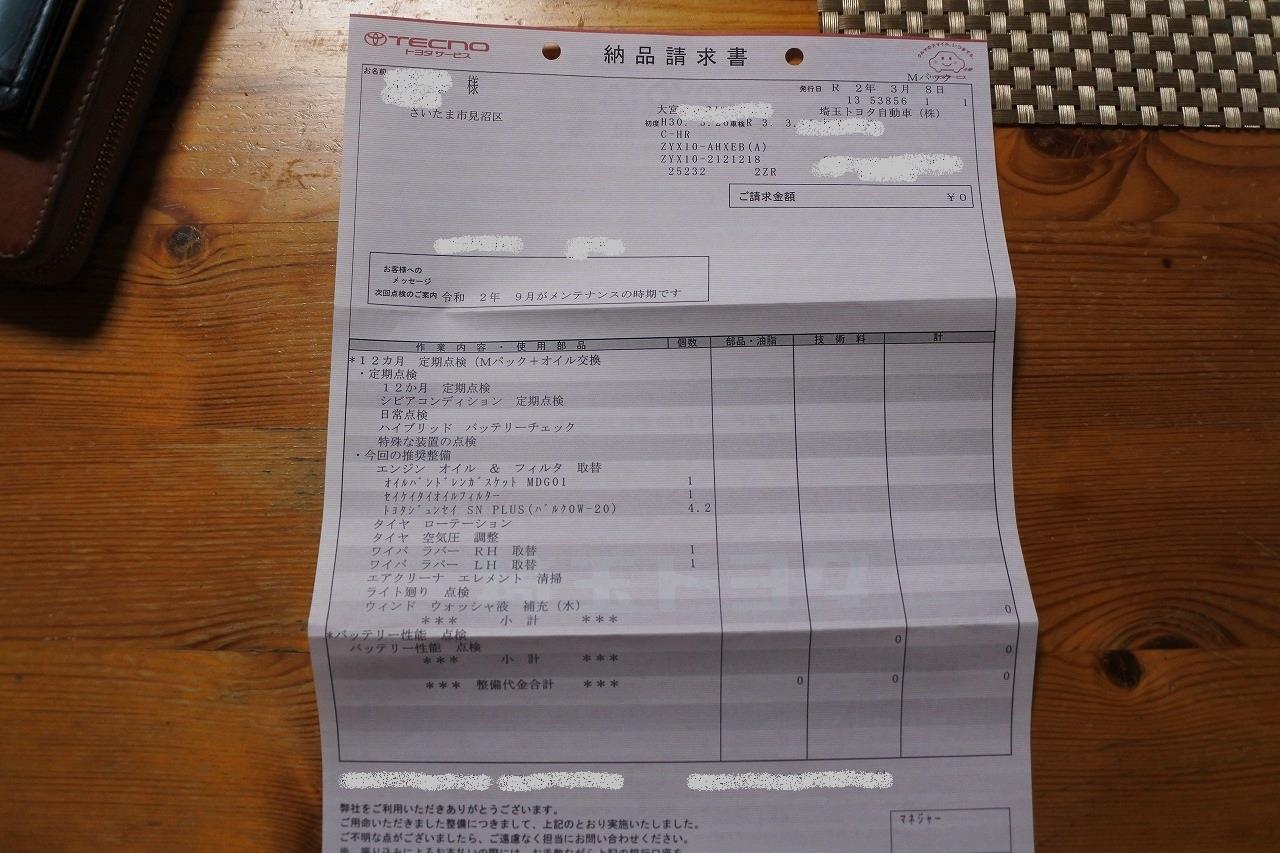 TECNO
トヨタサービス
納品請求書
Mパック
お名前 様
発行日 R 2年 3月 8日
13 53856 1 1
さいたま市見沼区
大宮
埼玉トヨタ自動車(株)
初度H30. 3.28車検R 3. 3.
C-HR
ZYX10-AHXEB(A)
ZYX10-2121218
25232 2ZR
ご請求金額 ¥0
お客様への
メッセージ
次回点検のご案内 令和 2年 9月がメンテナンスの時期です
作業内容・使用部品 個数 部品・油脂 技術料 計
*12カ月 定期点検(Mパック+オイル交換
・定期点検
12か月 定期点検
シビアコンディション 定期点検
日常点検
ハイブリッド バッテリーチェック
特殊な装置の点検
・今回の推奨整備
エンジン オイル & フィルタ 取替
オイルパンドレンガスケット MDG01 1
セイケイタイオイルフィルター 1
トヨタジュンセイ SN PLUS(バルク0W-20) 4.2
タイヤ ローテーション
タイヤ 空気圧 調整
ワイパ ラバー RH 取替 1
ワイパ ラバー LH 取替 1
エアクリーナ エレメント 清掃
ライト廻り 点検
ウィンド ウォッシャ液 補充(水)
*** 小計 *** 0
*バッテリー性能 点検
バッテリー性能 点検 0
*** 小計 *** 0
*** 整備代金合計 *** 0 0 0
弊社をご利用いただきありがとうございます。
ご用命いただきました整備につきまして、上記のとおり実施いたしました。
ご不明な点がございましたら、ご遠慮なく担当にお問い合わせください。
マネジャー